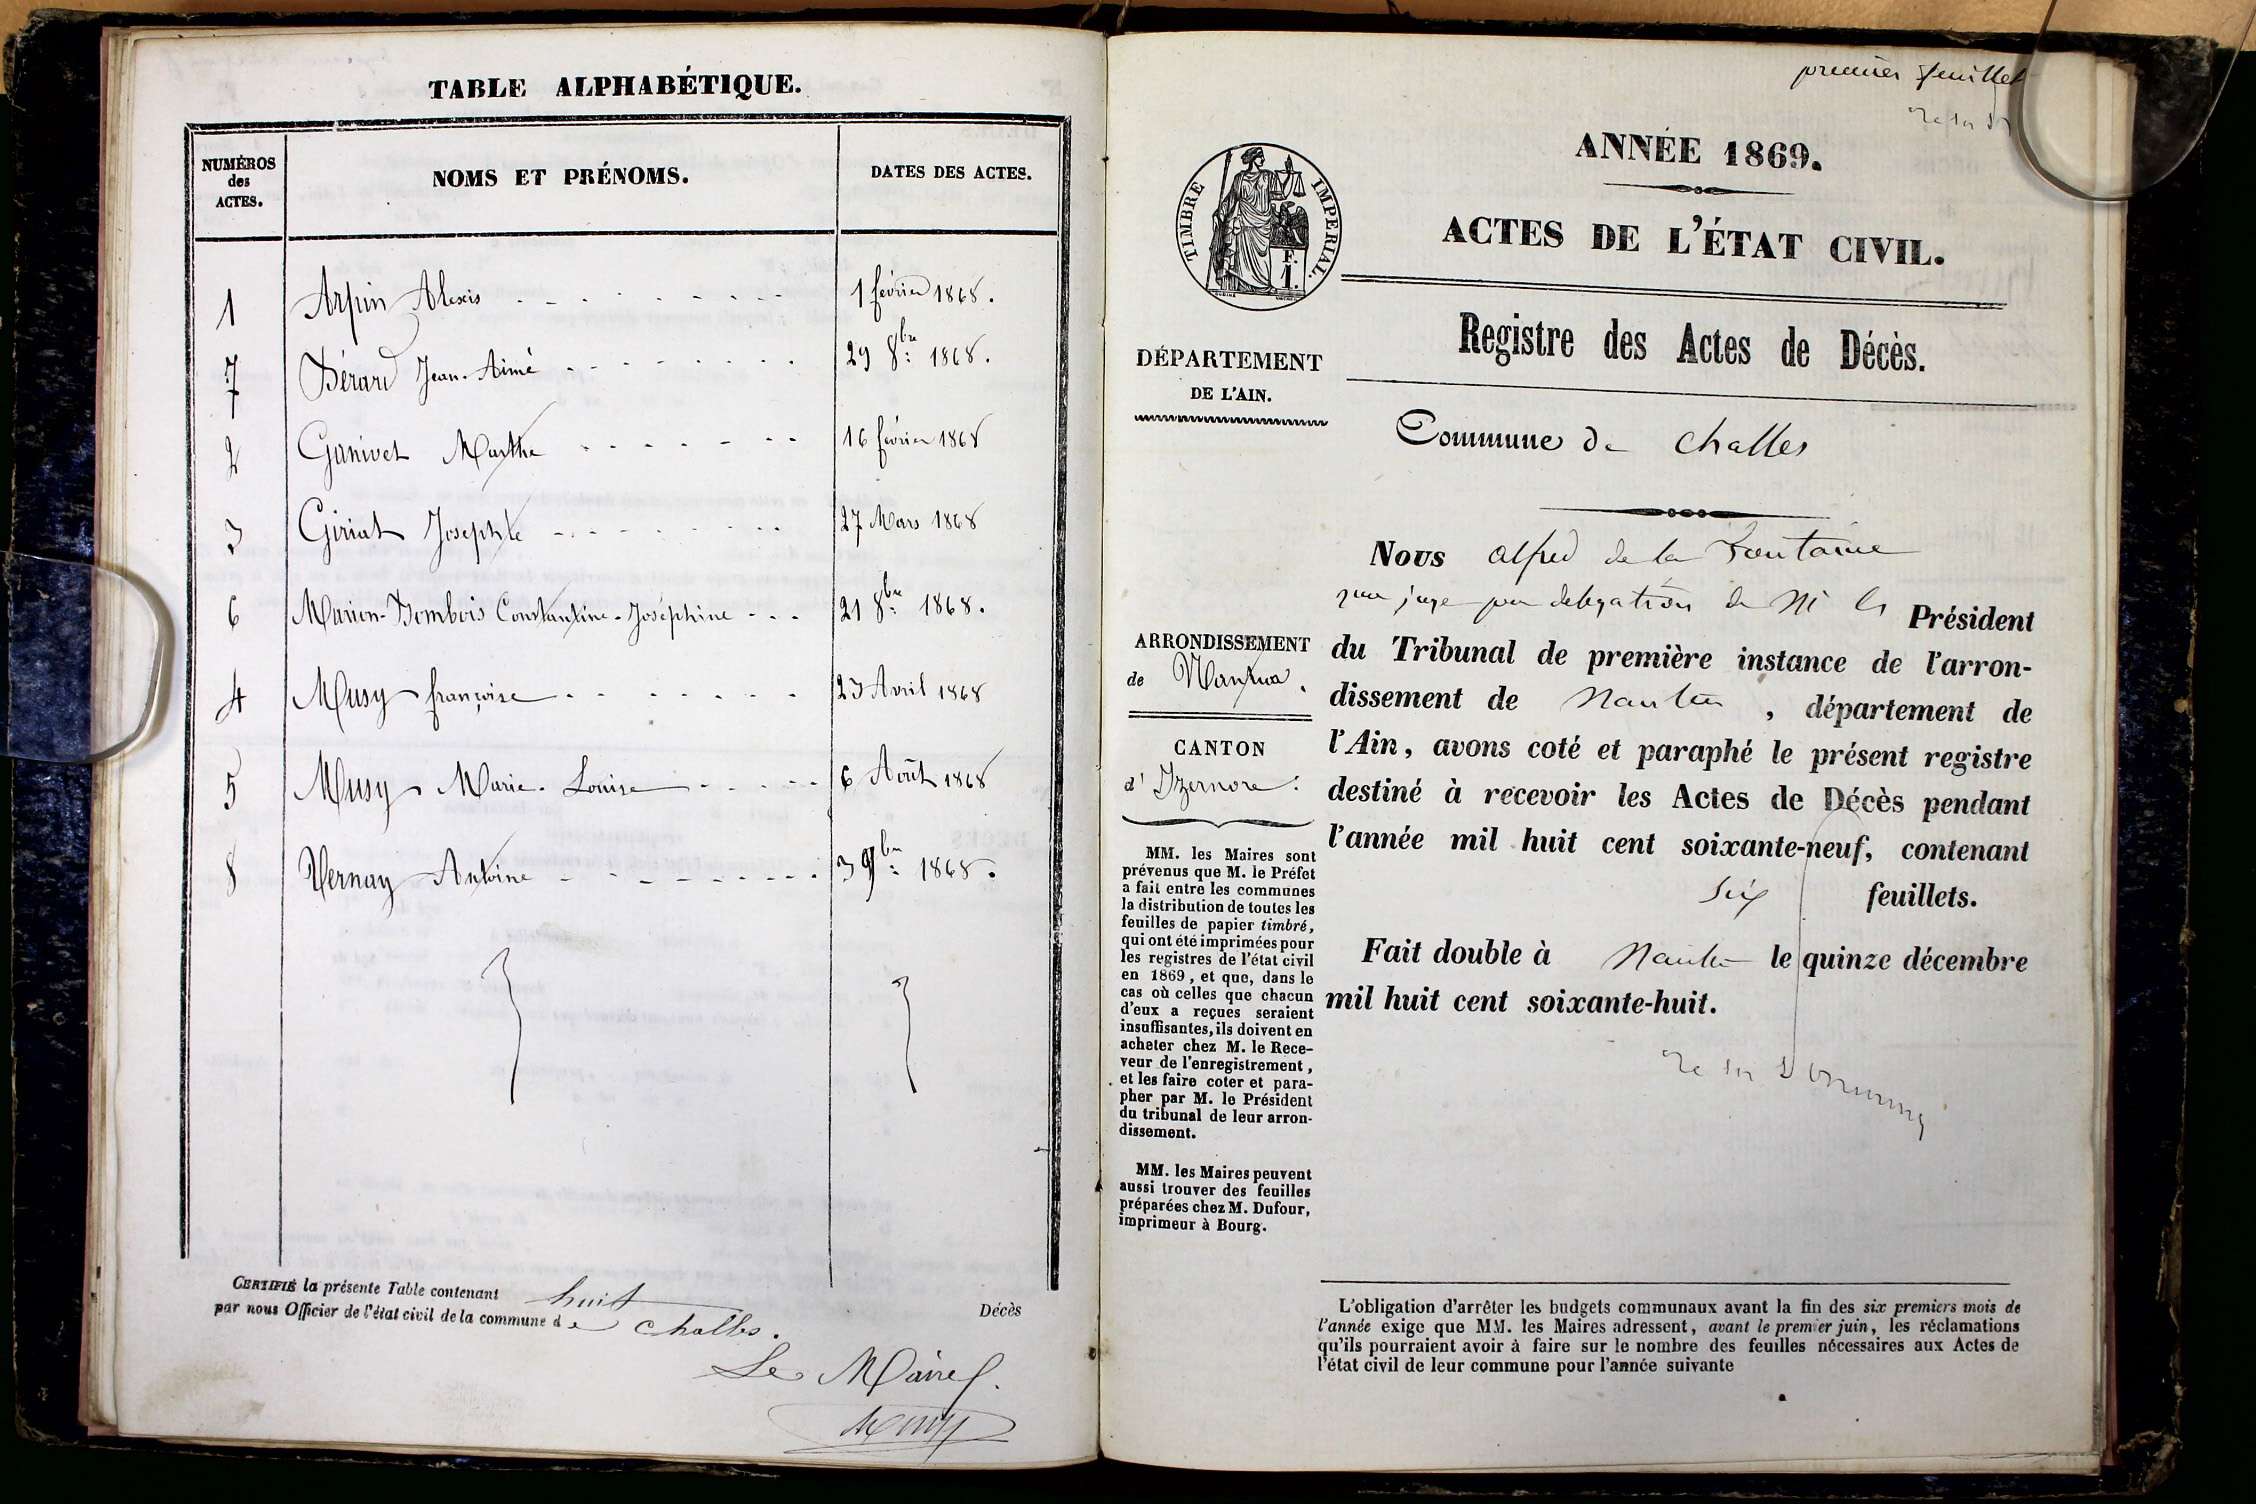 TABLE ALPHABÉTIQUE.
NUMÉROS
des
ACTES.
NOMS ET PRÉNOMS.
DATES DES ACTES.
1 Arpin Alexis 1 février 1868.
7 Bérard Jean-Aimé 29 8bre 1868.
2 Ganivet Marthe 16 février 1868
3 Giriat Josephte 27 Mars 1868
6 Marion-Bombois Constantine-Joséphine 21 8bre 1868.
4 Musy françoise 23 Avril 1868
5 Musy Marie-Louise 6 Août 1868
8 Vernay Antoine 3 9bre 1868.
CERTIFIÉ la présente Table contenant huit Décès
par nous Officier de l'état civil de la commune de Challes.
Le Maire
Musy
premier feuillet
ANNÉE 1869.
TIMBRE IMPERIAL.
1 F.
ACTES DE L'ÉTAT CIVIL.
Registre des Actes de Décès.
DÉPARTEMENT
DE L'AIN.
Commune de Challes
ARRONDISSEMENT
de Nantua.
CANTON
d'Izernore.
MM. les Maires sont
prévenus que M. le Préfet
a fait entre les communes
la distribution de toutes les
feuilles de papier timbré,
qui ont été imprimées pour
les registres de l'état civil
en 1869, et que, dans le
cas où celles que chacun
d'eux a reçues seraient
insuffisantes, ils doivent en
acheter chez M. le Rece-
veur de l'enregistrement,
et les faire coter et para-
pher par M. le Président
du tribunal de leur arron-
dissement.
MM. les Maires peuvent
aussi trouver des feuilles
préparées chez M. Dufour,
imprimeur à Bourg.
Nous alfred de la Fontaine
juge par delegation de Mr le Président
du Tribunal de première instance de l'arron-
dissement de Nantua, département de
l'Ain, avons coté et paraphé le présent registre
destiné à recevoir les Actes de Décès pendant
l'année mil huit cent soixante-neuf, contenant
six feuillets.
Fait double à Nantua le quinze décembre
mil huit cent soixante-huit.
L'obligation d'arrêter les budgets communaux avant la fin des six premiers mois de
l'année exige que MM. les Maires adressent, avant le premier juin, les réclamations
qu'ils pourraient avoir à faire sur le nombre des feuilles nécessaires aux Actes de
l'état civil de leur commune pour l'année suivante